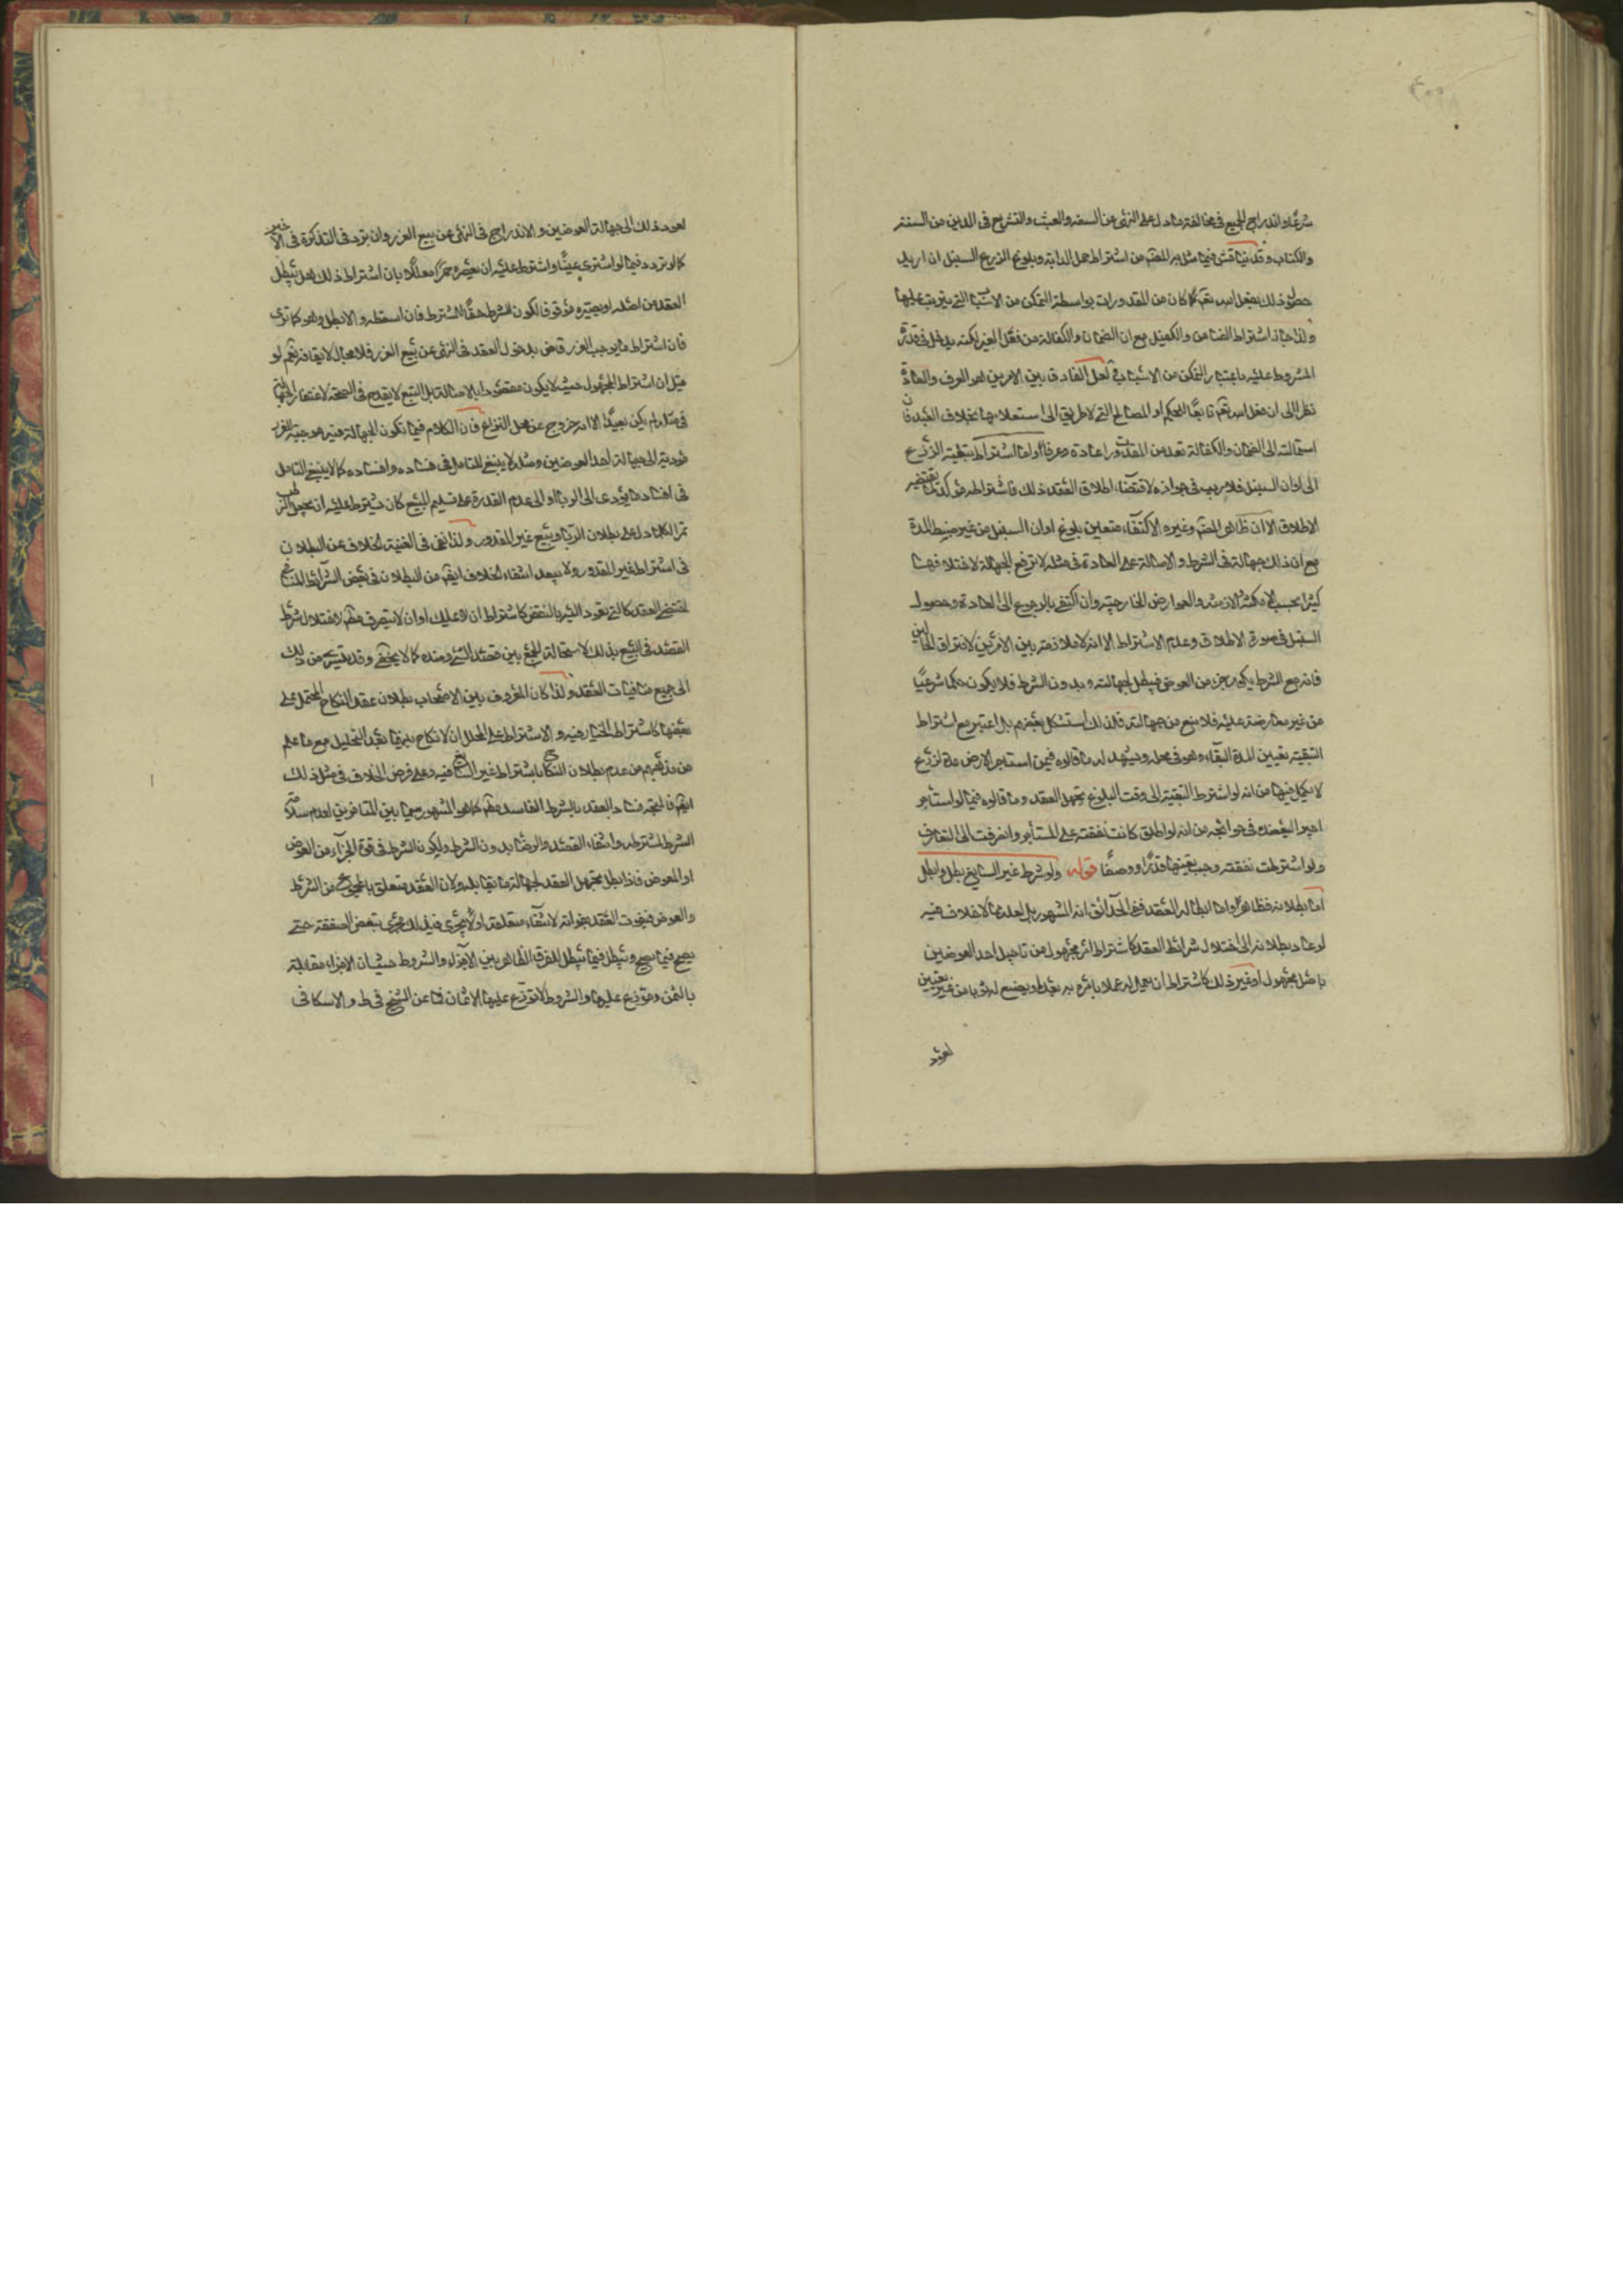 شرعًا واندراج الجميع في مخالفة ما دل على النهي عن السفه والعبث والتشريع في الدين من السنة
والكتاب وقد يناقش فيما مثل به المصنف من اشتراط حمل الدابة وبلوغ الزرع السنبل ان اريد
حصول ذلك بفعل الله تعم كما كان من المقدورات بواسطة التمكن من الاسباب التي يترتب عليها
ولذا جاز اشتراط الضامن والكفيل مع ان الضمان والكفالة من فعل الغير لكنه يدخل في قدرة
المشروط عليه باعتبار التمكن من الاسباب لعل الفارق بين الامرين هو العرف والعادة
نظرا الى ان فعل الله تعم تابعًا للحكم او المصالح التي لا طريق الى استعلامها بخلاف العبد فان
استمالته الى الضمان والكفالة تعد من المقدورات عادة وعرفا واما اشتراط تبقية الزرع
الى اوان السنبل فلا ريب في جوازه لاقتضاء اطلاق العقد ذلك فاشتراطه مؤكد لما يقتضيه
الاطلاق الا ان ظاهر المصنف وغيره الاكتفاء بتعيين بلوغ اوان السنبل من غير ضبط المدة
مع ان ذلك جهالة في الشرط والاحالة على العادة في مثله لا ترفع الجهالة لاختلافها
كثيرا بحسب الامكنة والازمنة والعوارض الخارجية وان اكتفي بالرجوع الى العادة وحصول
السنبل في صورة الاطلاق وعدم الاشتراط الا انه لا ملازمة بين الامرين لافتراق الحالين
فانه مع الشرط يكون جزء من العوض فيبطل لجهالته وبدون الشرط فلا يكون حكما شرعيًا
من غير معارضة عليه فلا منع من جهالته فلذلك استشكل بعضهم بل اعتبر مع اشتراط
التبقية تعيين المدة البقاء وهو في محله ويشهد له ما قالوه فيمن استاجر الارض مدة لزرع
لا يكمل فيها من انه لو اشترط التبقية الى وقت البلوغ تجهل العقد وما قالوه فيما لو استأجر
اجير البعضه في حوائجه من انه لو اطلق كانت نفقته على المستأجر وانصرفت الى المتعارف
ولو اشترطت نفقته وجب تعيينها قدرًا ووصفًا قوله ولو شرط غير السايغ بطل وابطل
اما بطلانه فظاهر واما ابطاله العقد ففي الحدائق انه المشهور بل لعله مما لا خلاف فيه
لو عاد بطلانه الى اختلال شرائط العقد كاشتراط امر مجهول من تاجيل احد العوضين
باجل مجهول او غير ذلك كاشتراط ان يعمل له عملا يأمره به بعد او يصنع له ثوبا من غير تعيين
لعود
لعود ذلك الى جهالة العوضين والاندراج في النهي عن بيع الغرر وان تردد في التذكرة في الاخير
كما لو تردد فيما لو اشترى عينًا واشترط عليه ان يعصره خمرًا معللًا بان اشتراط ذلك هل يبطل
العقد من اصله او يصير موقوفا لكون الشرط حقًا للمشترط فان اسقطه والا بطل وهو كما ترى
فان اشتراط ما يوجب الغرر قاض بدخول العقد في النهي عن بيع الغرر فلا مجال لايقافه نعم لو
قيل ان اشتراط المجهول حيث لا يكون مقصودا بالاصالة بل التبع لا يقدح في الصحة لاغتفار الجهالة
في مثله لم يكن بعيدًا الا انه خروج عن محل النزاع فان الكلام فيما تكون الجهالة فيه موجبة للغرر
مؤدية الى جهالة احد العوضين ومثله لا ينبغي التامل في فساده وافساده كما لا ينبغي التامل
في افساد ما يؤدي الى الربا او الى عدم القدرة على تسليم المبيع كان يشترط عليه ان يجعل الرطب
تمرا لكل ما دل على بطلان الربا وبيع غير المقدور ولذا نفى في الغنية الخلاف عن البطلان
في اشتراط غير المقدور ولا يبعد انتفاء الخلاف ايضم من البطلان في بعض الشرائط المنافية
لمقتضى العقد كالتي يعود اليه بالنقض كاشتراط ان لا يملك او ان لا يتصرف فيه لاختلال شرط
القصد في البيع بذلك لاستحالة الجمع بين قصد الشئ وضده كما لا يخفى وقد يسري من ذلك
الى جميع منافيات العقد ولذا كان المعروف بين الاصحاب بطلان عقد النكاح المشتمل على
بعضها كاشتراط الخيار فيه والاشتراط على المحلل ان لا نكاح بينهما بعد التحليل مع ما علم
من مذهبهم من عدم بطلان النكاح باشتراط غير السايغ فيه وعلى فرض الخلاف في مثل ذلك
ايضم فالمتجه فساد العقد بالشرط الفاسد مطم كما هو المشهور سيما بين المتاخرين لعدم سلامة
الشرط لمشترطه وانتفاء القصد والرضا بدون الشرط ولكون الشرط في قوة الجزء من العوض
او المعوض فاذا بطل تجهل العقد لجهالة ما يقابله ولان العقد متعلق بالمجموع من الشرط
والعوض فيفوت العقد بفواته لانتفاء متعلقه او لا يجري فيه ذلك مجرى تبعض الصفقة حتى
يصح فيما يصح ويبطل فيما يبطل للفرق الظاهر بين الاجزاء والشروط حيث ان الاجزاء مقابلة
بالثمن وموزع عليها والشروط لا توزع عليها الاثمان فما عن الشيخ في ط والاسكافي